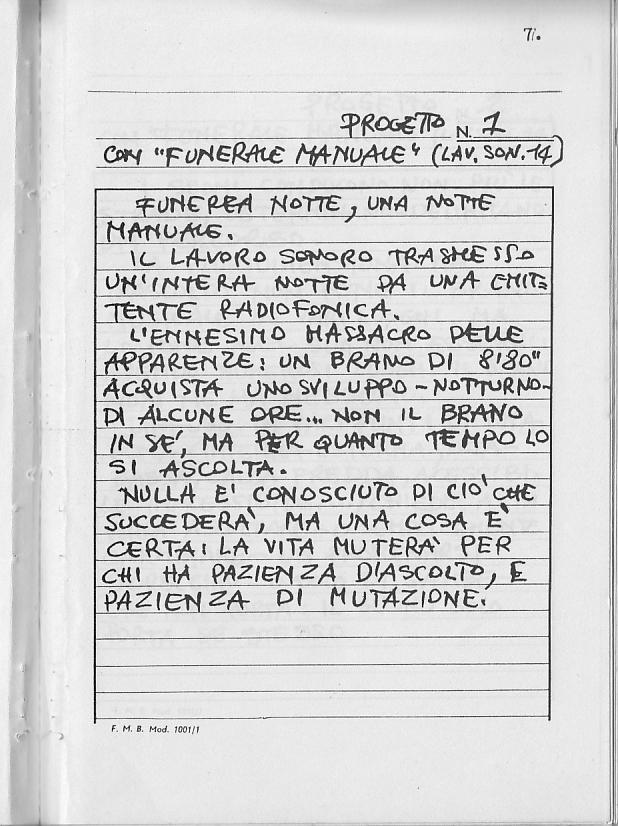 71.
PROGETTO N. 1
CON "FUNERALE MANUALE" (LAV. SON. 14)
FUNEREA NOTTE, UNA NOTTE
MANUALE.
IL LAVORO SONORO TRASMESSO
UN'INTERA NOTTE DA UNA EMIT=
TENTE RADIOFONICA.
L'ENNESIMO MASSACRO DELLE
APPARENZE: UN BRANO DI 8'80"
ACQUISTA UNO SVILUPPO - NOTTURNO-
DI ALCUNE ORE... NON IL BRANO
IN SE', MA PER QUANTO TEMPO LO
SI ASCOLTA.
NULLA E' CONOSCIUTO DI CIO' CHE
SUCCEDERA', MA UNA COSA E'
CERTA: LA VITA MUTERA' PER
CHI HA PAZIENZA D'ASCOLTO, E
PAZIENZA DI MUTAZIONE.
F. M. B. Mod. 1001/1